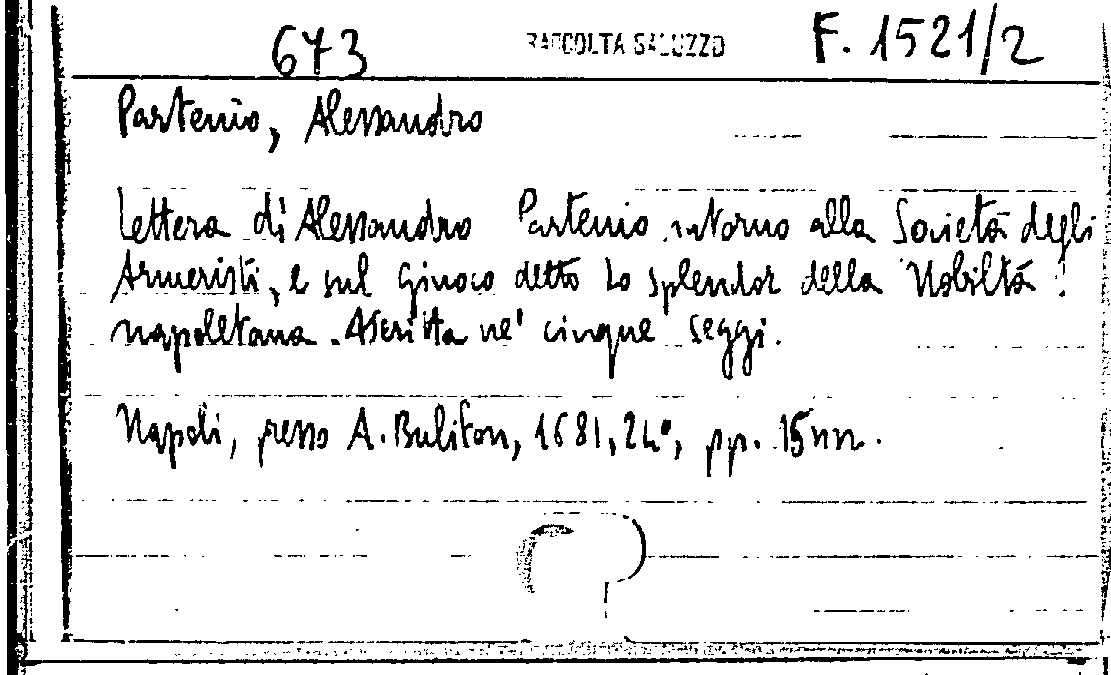 673 RACCOLTA SALUZZO F. 1521/2
Partenio, Alessandro
Lettera di Alessandro Partenio intorno alla Società degli
Armeristi, e sul Giuoco detto Lo splendor della Nobiltà
napoletana. Ascritta ne' cinque seggi.
Napoli, presso A. Bulifon, 1681, 24°, pp. 15 nn.